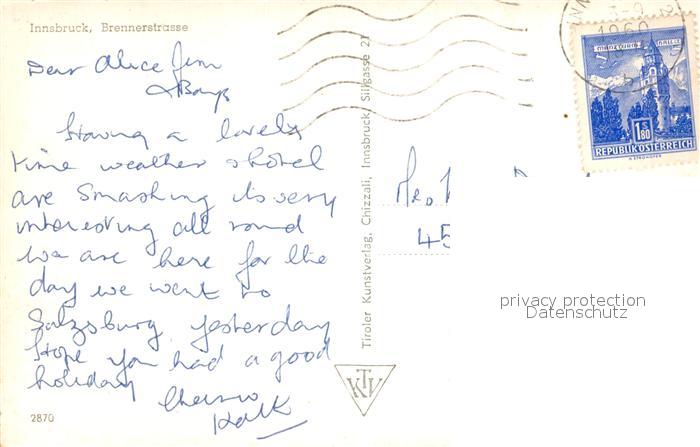 Innsbruck, Brennerstrasse
Dear Alice Jim
& Boys
Having a lovely
time weather & hotel
are smashing its very
interesting all round
We are here for the
day we went to
Salzsburg yesterday
Hope you had a good
holiday
Cheerio
2870
Tiroler Kunstverlag, Chizzali, Innsbruck, Sillgasse 21
KTV
1960
1S80
REPUBLIK ÖSTERREICH
45
privacy protection
Datenschutz